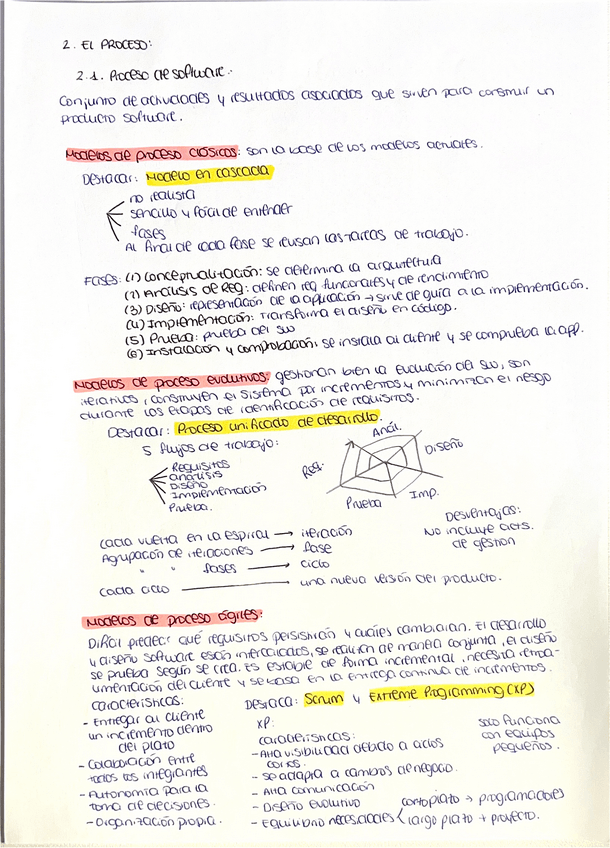 2. EL PROCESO:
2.1. Proceso de software.
Conjunto de actividades y resultados asociados que sirven para construir un
producto software.
Modelos de proceso clásicos: son la base de los modelos actuales.
Destacar: Modelo en cascada
no realista
sencillo y fácil de entender
fases
Al final de cada fase se revisan las tareas de trabajo.
Fases: (1) Conceptualización: se determina la arquitectura
(2) Análisis de Req: definen req funcionales y de rendimiento
(3) Diseño: representación de la aplicación → sirve de guía a la implementación.
(4) Implementación: Transforma el diseño en código.
(5) Prueba: prueba del sw
(6) Instalación y comprobación: se instala al cliente y se comprueba la app.
Modelos de proceso evolutivos: gestionan bien la evolución del sw, son
iterativos, construyen el sistema por incrementos y minimizan el riesgo
durante las etapas de identificación de requisitos.
Destacar: Proceso unificado de desarrollo.
5 flujos de trabajo:
Requisitos
análisis
Diseño
Implementación
Prueba.
Anál.
Diseño
Req.
Prueba
Imp.
Desventajas:
No incluye acts.
de gestion
cada vuelta en la espiral → iteración
Agrupación de iteraciones → fase
" " fases → ciclo
cada ciclo una nueva versión del producto.
Modelos de proceso ágiles:
Difícil predecir qué requisitos persistirán y cuáles cambiarán. El desarrollo
y diseño software están intercalados, se realizan de manera conjunta, el diseño
se prueba según se crea. Es estable de forma incremental, necesita retroa-
limentación del cliente y se basa en la entrega continua de incrementos.
características:
- Entregar al cliente
un incremento dentro
del plazo
- Colaboración entre
todos los integrantes
- Autonomía para la
toma de decisiones.
- Organización propia.
Destaca: Scrum y Extreme Programming (XP)
XP:
características:
- Alta visibilidad debido a ciclos
cortos.
- Se adapta a cambios de negocio.
- Alta comunicación
- Diseño evolutivo
- Equilibrio necesidades < corto plazo → programadores
largo plazo → proyecto.
solo funciona
con equipos
pequeños.